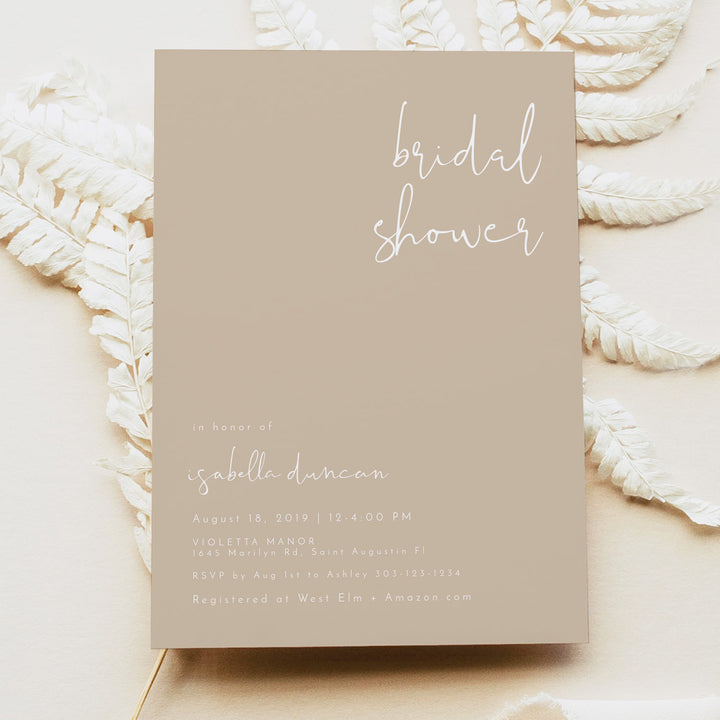 bridal
shower
in honor of
isabella duncan
August 18, 2019 | 12-4:00 PM
VIOLETTA MANOR
1645 Marilyn Rd, Saint Augustin Fl
RSVP by Aug 1st to Ashley 303-123-1234
Registered at West Elm + Amazon.com